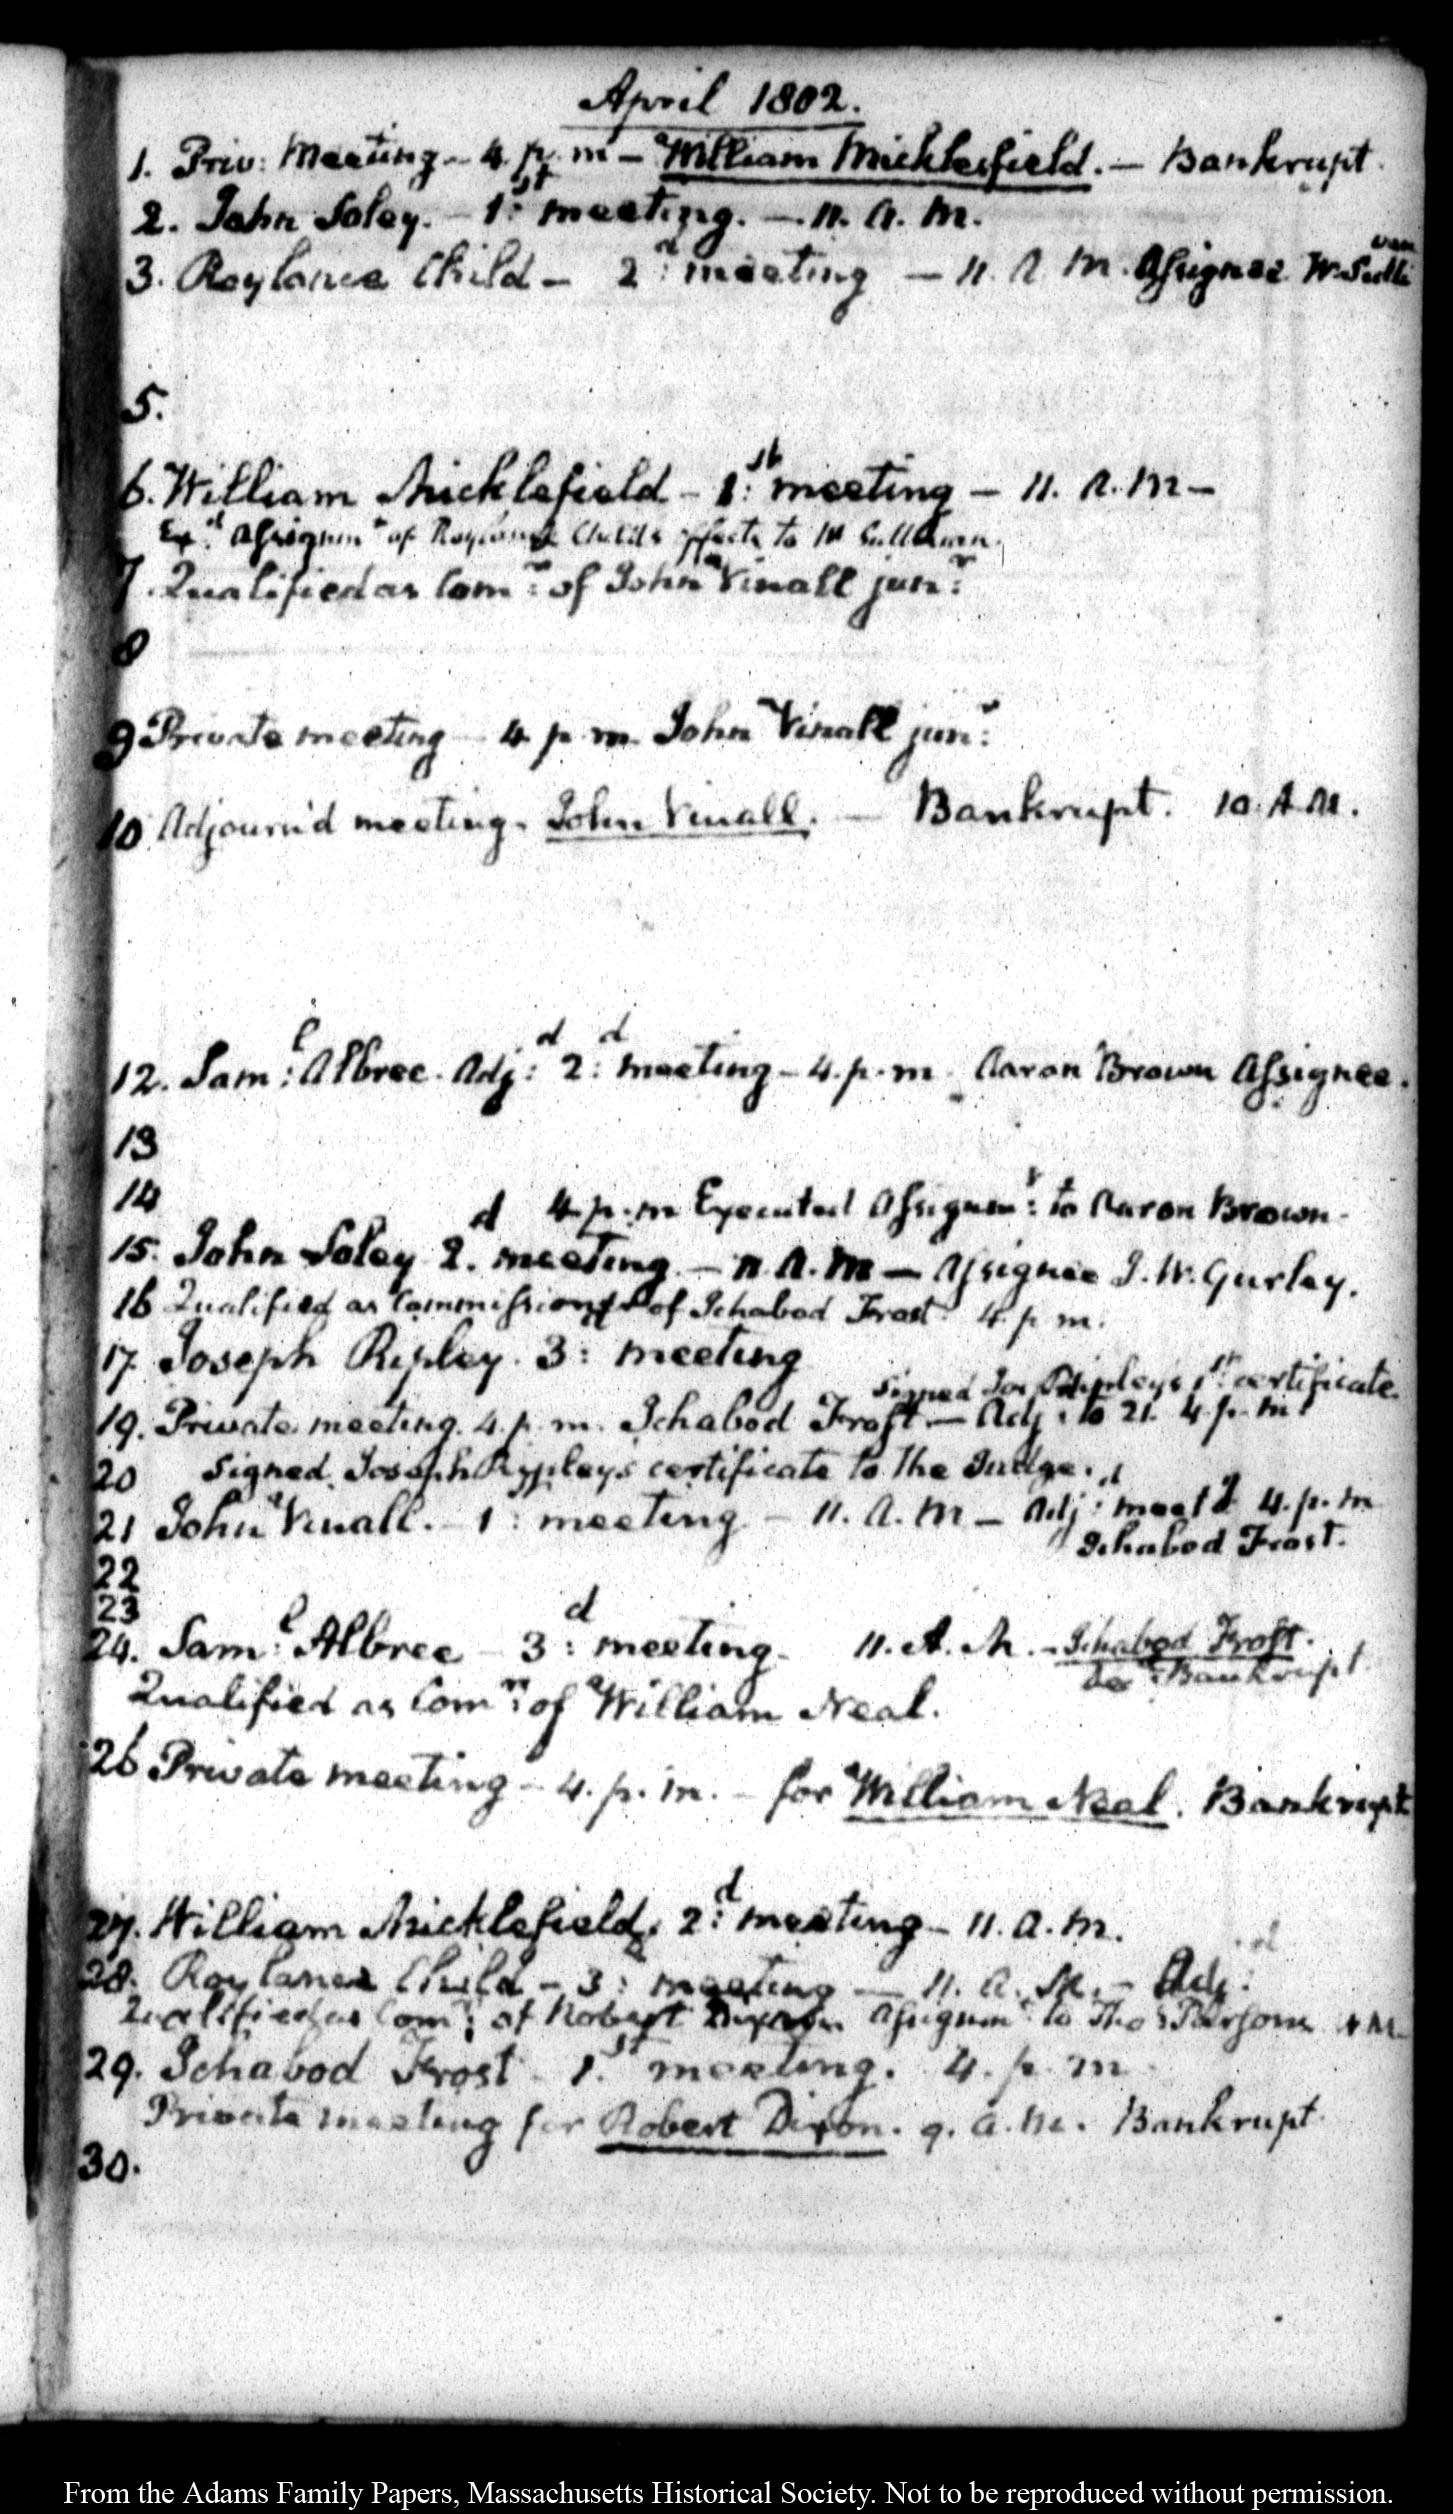 April 1802.
1. Priv: Meeting - 4. p. m - William Micklefield. - Bankrupt.
2. John Soley. - 1st: meeting. - 11. A. M.
3. Roylance Child - 2d: meeting - 11. A. M. Assignee W. Sulli
van
5.
6. William Micklefield - 1st: meeting - 11. A. M -
Exd: Assignmt of Roylance Child's effects to W Sullivan.
7. Qualified as Comr: of John Vinall junr:
8
9 Private meeting - 4. p. m. John Vinall junr:
10 Adjourn'd meeting. John Vinall. - Bankrupt. 10. A. M.
12. Saml: Albree. Adjd: 2d: meeting - 4. p. m. Aaron Brown Assignee.
13
14
4. p. m Executed Assignmt: to Aaron Brown.
15. John Soley 2d. meeting - 11. A. M - Assignee J. W. Gurley.
16 Qualified as Commissioner of Ichabod Frost 4. p. m.
17. Joseph Ripley. 3: meeting
Signed Jos Ripleys 1st: certificate.
19. Private meeting. 4. p. m. Ichabod Frost - Adj: to 21. 4. p. m.
20 Signed Joseph Rippleys certificate to the Judge.
21 John Vinall. - 1: meeting - 11. A. M - Adjd: meetg 4. p. m
Ichabod Frost.
22
23
24. Saml: Albree - 3d: meeting - 11. A. M. - Ichabod Frost.
Bankrupt
Qualified as Comr: of William Neal.
26 Private meeting - 4. p. m. - for William Neal. Bankrupt
27. William Micklefield. 2d: meeting - 11. A. M.
28. Roylance Child - 3: meeting - 11. A. M. - Adjd:
Qualified as Comr: of Robert Dixon Assignmt to Thos: Parsons
29. Ichabod Frost - 1st: meeting. 4. p. m
Private meeting for Robert Dixon. 9. A. M. Bankrupt.
30.
From the Adams Family Papers, Massachusetts Historical Society. Not to be reproduced without permission.